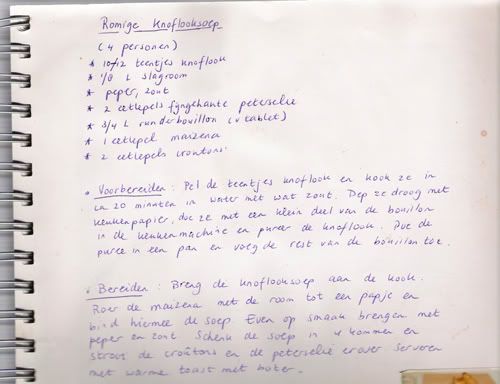 Romige Knoflooksoep
(4 personen)
* 10/12 teentjes knoflook
* 1/8 L slagroom
* peper, zout
* 2 eetlepels fijngehakte peterselie
* 3/4 L runderbouillon (v tablet)
* 1 eetlepel maizena
* 2 eetlepels croutons
• Voorbereiden : Pel de teentjes knoflook en kook ze in
ca 20 minuten in water met wat zout. Dep ze droog met
keukenpapier, doe ze met een klein deel van de bouillon
in de keukenmachine en pureer de knoflook. Doe de
puree in een pan en voeg de rest van de bouillon toe.
• Bereiden : Breng de knoflooksoep aan de kook.
Roer de maizena met de room tot een papje en
bind hiermee de soep Even op smaak brengen met
peper en zout Schenk de soep in 4 kommen en
strooi de croûtons en de peterselie erover Serveren
met warme toast met boter.